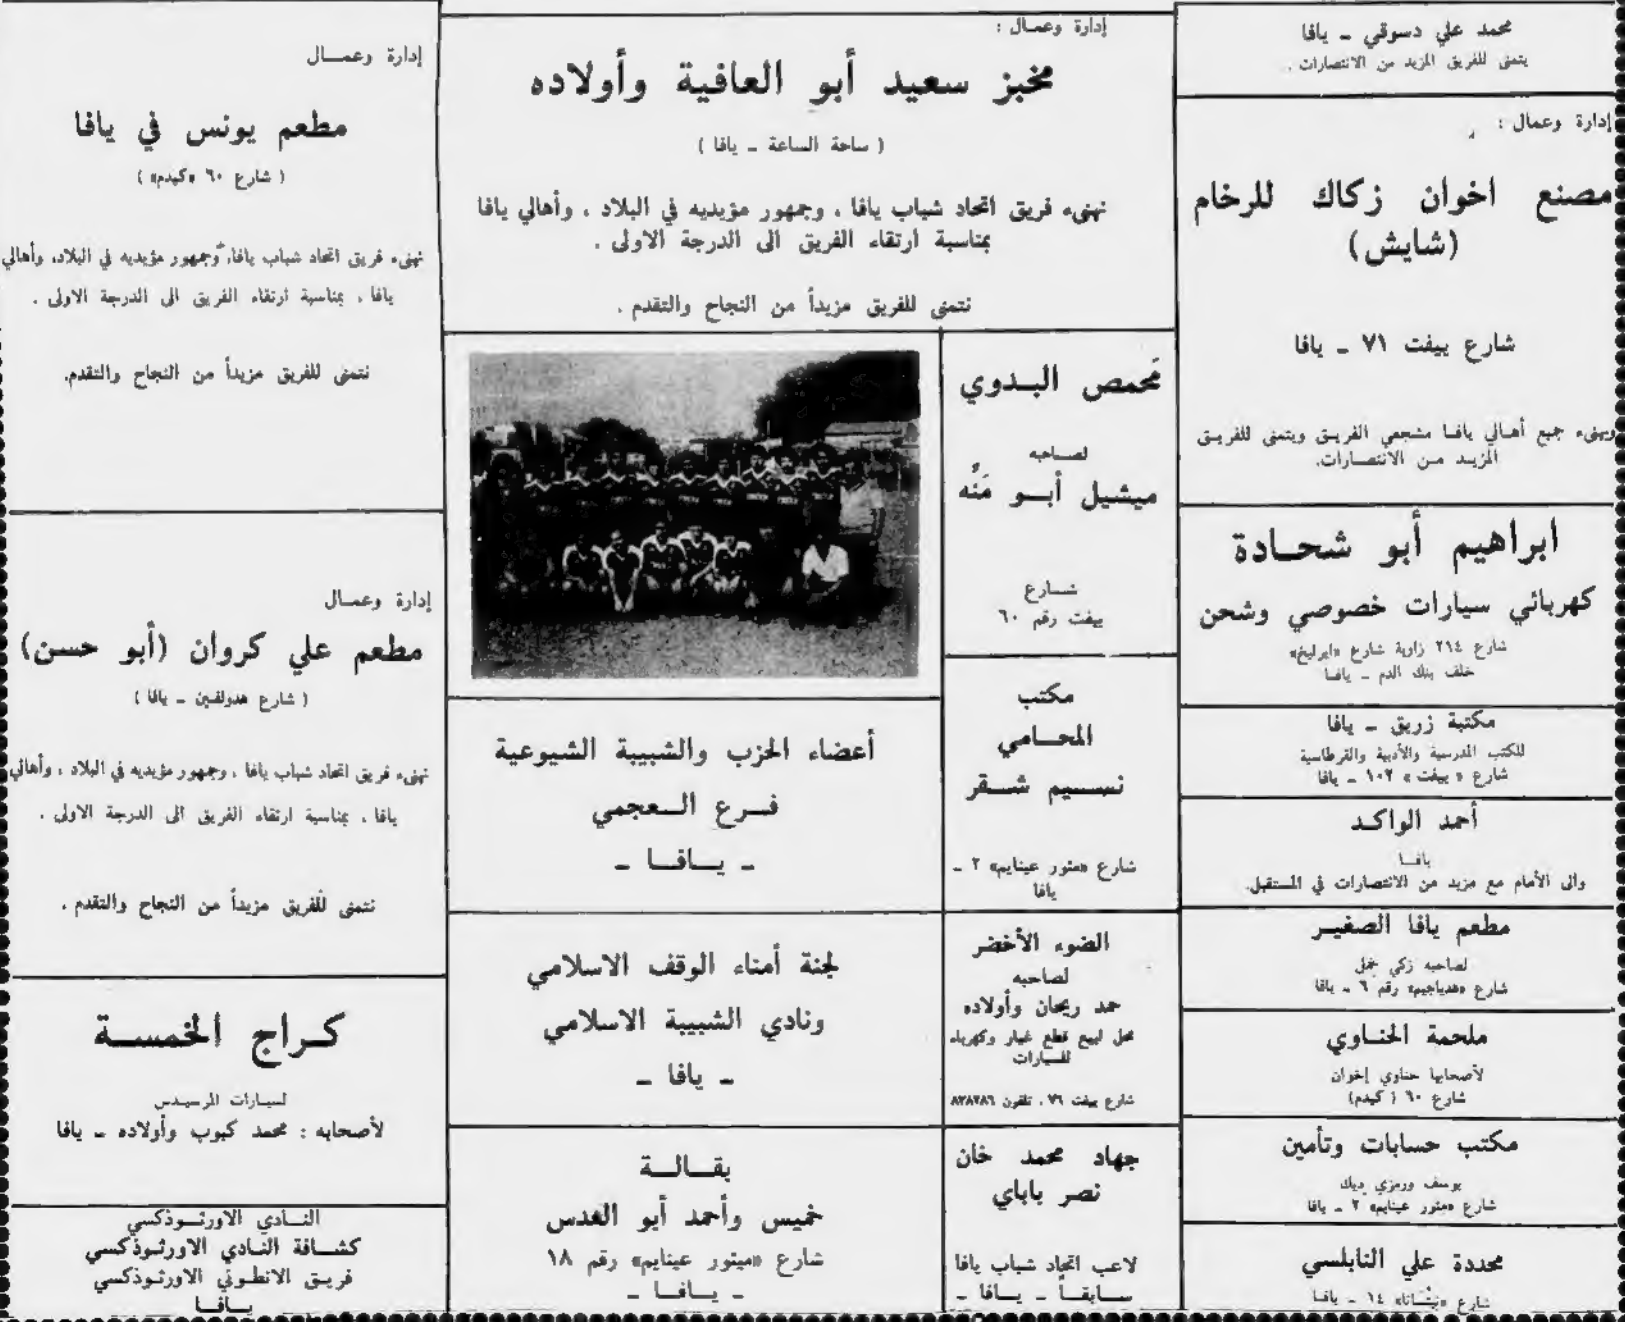 محمد علي دسوقي - يافا
يتمنى للفريق المزيد من الانتصارات .
إدارة وعمال :
مصنع اخوان زكاك للرخام
(شايش)
شارع ييفت ٧١ - يافا
ويهنىء جميع أهالي يافا مشجعي الفريق ويتمنى للفريق
المزيد من الانتصارات.
ابراهيم أبو شحادة
كهربائي سيارات خصوصي وشحن
شارع ٢١٤ زاوية شارع «ايرليخ»
خلف بنك الدم - يافا
مكتبة زريق - يافا
للكتب المدرسية والأدبية والقرطاسية
شارع « ييفت » ١٠٢ - يافا
أحمد الواكد
يافا
والى الأمام مع مزيد من الانتصارات في المستقبل.
مطعم يافا الصغير
لصاحبه زكي جمل
شارع «هدياجيم» رقم ٦ - يافا
ملحمة الحناوي
لأصحابها حناوي إخوان
شارع ٦٠ (كيدم)
مكتب حسابات وتأمين
يوسف ورمزي ديك
شارع «ميتور عينايم» ٢ - يافا
محددة علي النابلسي
شارع ١٤ - يافا
إدارة وعمال :
مخبز سعيد أبو العافية وأولاده
( ساحة الساعة - يافا )
نهنىء فريق اتحاد شباب يافا ، وجمهور مؤيديه في البلاد ، وأهالي يافا
بمناسبة ارتقاء الفريق الى الدرجة الاولى .
نتمنى للفريق مزيداً من النجاح والتقدم .
محمص البدوي
لصاحبه
ميشيل أبو مَنُّه
شارع
ييفت رقم ٦٠
مكتب
المحامي
نسيم شقر
شارع «متور عينايم» ٢ -
يافا
الضوء الأخضر
لصاحبه
حمد ريحان وأولاده
محل لبيع قطع غيار وكهرباء
للسيارات
شارع ييفت ٧٦ ، تلفون ٨٢٨٢٨٦
جهاد محمد خان
نصر باباي
لاعب اتحاد شباب يافا
سابقاً - يافا -
أعضاء الحزب والشبيبة الشيوعية
فرع العجمي
- يافا -
لجنة أمناء الوقف الاسلامي
ونادي الشبيبة الاسلامي
- يافا -
بقالة
خميس وأحمد أبو العدس
شارع «ميتور عينايم» رقم ١٨
- يافا -
إدارة وعمال
مطعم يونس في يافا
( شارع ٦٠ «كيدم» )
نهنىء فريق اتحاد شباب يافا، وجمهور مؤيديه في البلاد، وأهالي
يافا ، بمناسبة ارتقاء الفريق الى الدرجة الاولى .
نتمنى للفريق مزيداً من النجاح والتقدم.
إدارة وعمال
مطعم علي كروان (أبو حسن)
( شارع هدولفين - يافا )
نهنىء فريق اتحاد شباب يافا ، وجمهور مؤيديه في البلاد ، وأهالي
يافا ، بمناسبة ارتقاء الفريق الى الدرجة الاولى .
نتمنى للفريق مزيداً من النجاح والتقدم .
كراج الخمسة
لسيارات المرسيدس
لأصحابه : محمد كبوب وأولاده - يافا
النادي الاورثوذكسي
كشافة النادي الاورثوذكسي
فريق الانطوني الاورثوذكسي
يافا